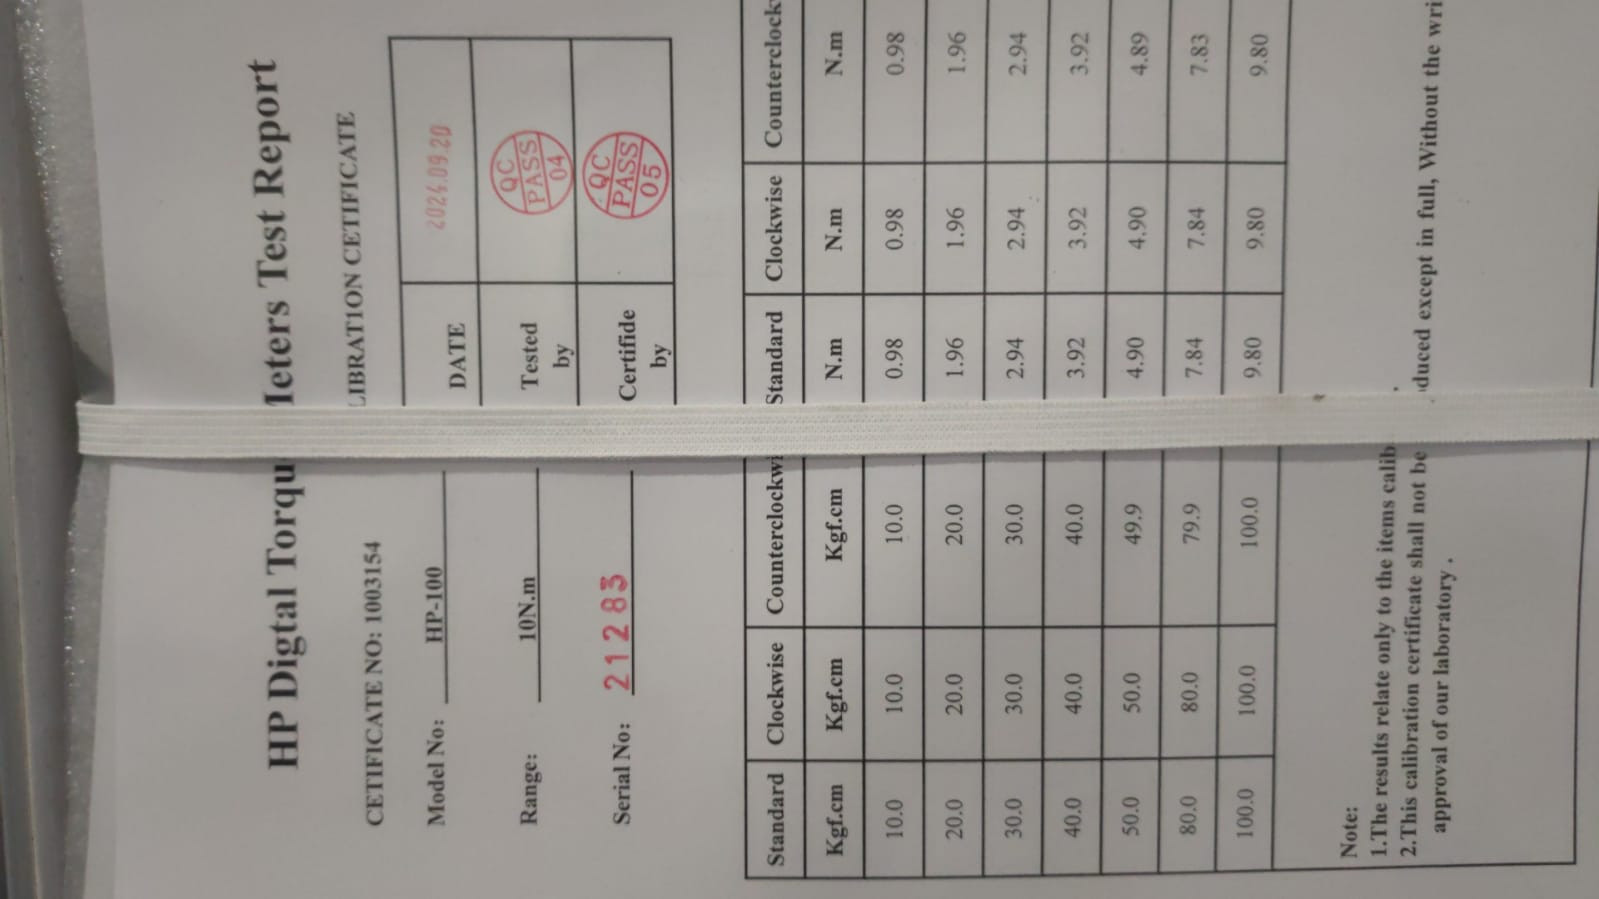 HP Digtal Torqu Meters Test Report
LIBRATION CETIFICATE
CETIFICATE NO: 1003154
Model No: HP-100
DATE 2024.09.20
Range: 10N.m
Tested by QC PASS 04
Serial No: 21283
Certifide by QC PASS 05
Standard Clockwise Counterclockwi Standard Clockwise Counterclock
Kgf.cm Kgf.cm Kgf.cm N.m N.m N.m
10.0 10.0 10.0 0.98 0.98 0.98
20.0 20.0 20.0 1.96 1.96 1.96
30.0 30.0 30.0 2.94 2.94 2.94
40.0 40.0 40.0 3.92 3.92 3.92
50.0 50.0 49.9 4.90 4.90 4.89
80.0 80.0 79.9 7.84 7.84 7.83
100.0 100.0 100.0 9.80 9.80 9.80
Note:
1.The results relate only to the items calib
2.This calibration certificate shall not be duced except in full, Without the wri
approval of our laboratory .